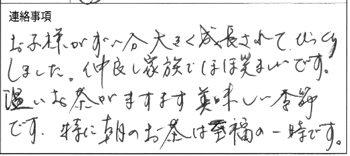 連絡事項
お子様がずい分大きく成長されてびっくり
しました。仲良し家族でほほ笑ましいです。
温いお茶がますます美味しい季節
です。特に朝のお茶は至福の一時です。